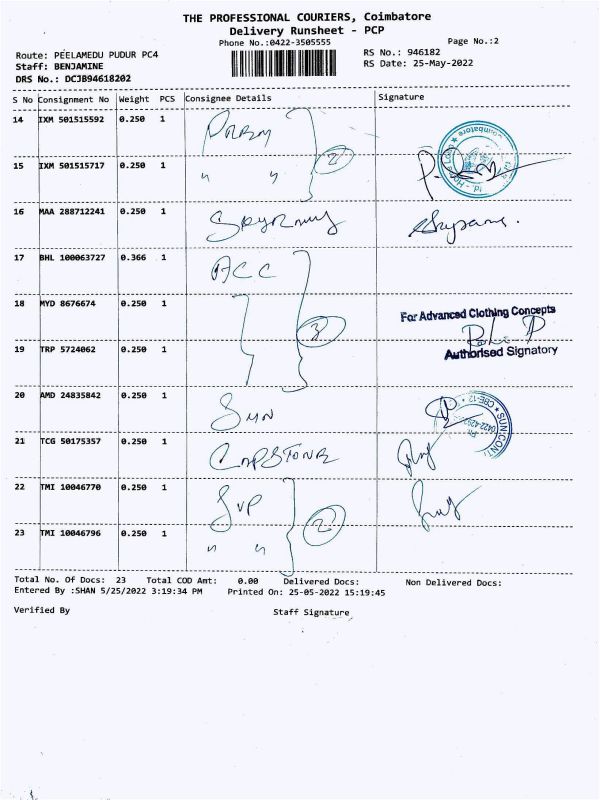 THE PROFESSIONAL COURIERS, Coimbatore
Delivery Runsheet - PCP
Phone No.:0422-3505555
Page No.:2
Route: PEELAMEDU PUDUR PC4
RS No.: 946182
Staff: BENJAMINE
RS Date: 25-May-2022
DRS No.: DCJB94618202
S No Consignment No Weight PCS Consignee Details Signature
14 IXM 501515592 0.250 1
15 IXM 501515717 0.250 1 " " 2
16 MAA 288712241 0.250 1
17 BHL 100063727 0.366 1 ACC
18 MYD 8676674 0.250 1 3
For Advanced Clothing Concepts
19 TRP 5724062 0.250 1
Authorised Signatory
20 AMD 24835842 0.250 1 SUN
21 TCG 50175357 0.250 1 CAPSTONE
22 TMI 10046770 0.250 1 SVP
23 TMI 10046796 0.250 1 " " 2
Total No. Of Docs: 23 Total COD Amt: 0.00 Delivered Docs: Non Delivered Docs:
Entered By :SHAN 5/25/2022 3:19:34 PM Printed On: 25-05-2022 15:19:45
Verified By Staff Signature